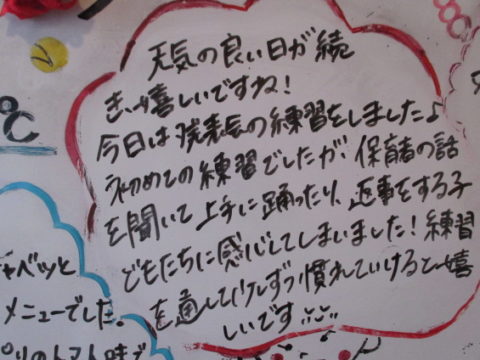 天気の良い日が続
き、嬉しいですね!
今日は発表会の練習をしました♪
初めての練習でしたが、保育者の話
を聞いて上手に踊ったり、返事をする子
どもたちに感心してしまいました!練習
を通して少しずつ慣れていけると嬉
しいです
℃
ャベツと
メニューでした。